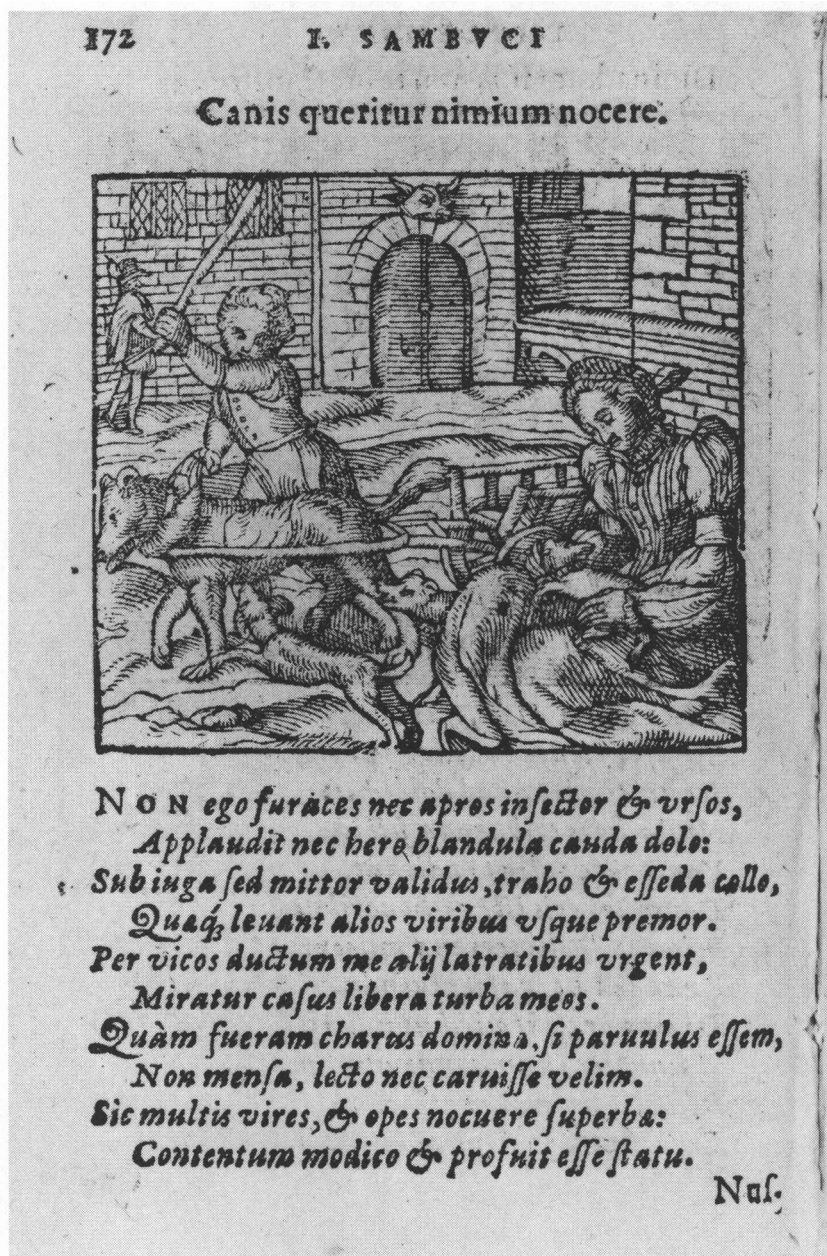 172 I. SAMBVCI
Canis queritur nimium nocere.
NON ego furaces nec apros inſector & vrſos,
Applaudit nec hero blandula cauda dolo:
Sub iuga ſed mittor validus, traho & eſſeda collo,
Quaq́; leuant alios viribus vſque premor.
Per vicos ductum me alij latratibus vrgent,
Miratur caſus libera turba meos.
Quàm fueram charus dominæ, ſi paruulus eſſem,
Non menſa, lecto nec caruiſſe velim.
Sic multis vires, & opes nocuere ſuperbæ:
Contentum modico & profuit eſſe ſtatu.
Nuſ.